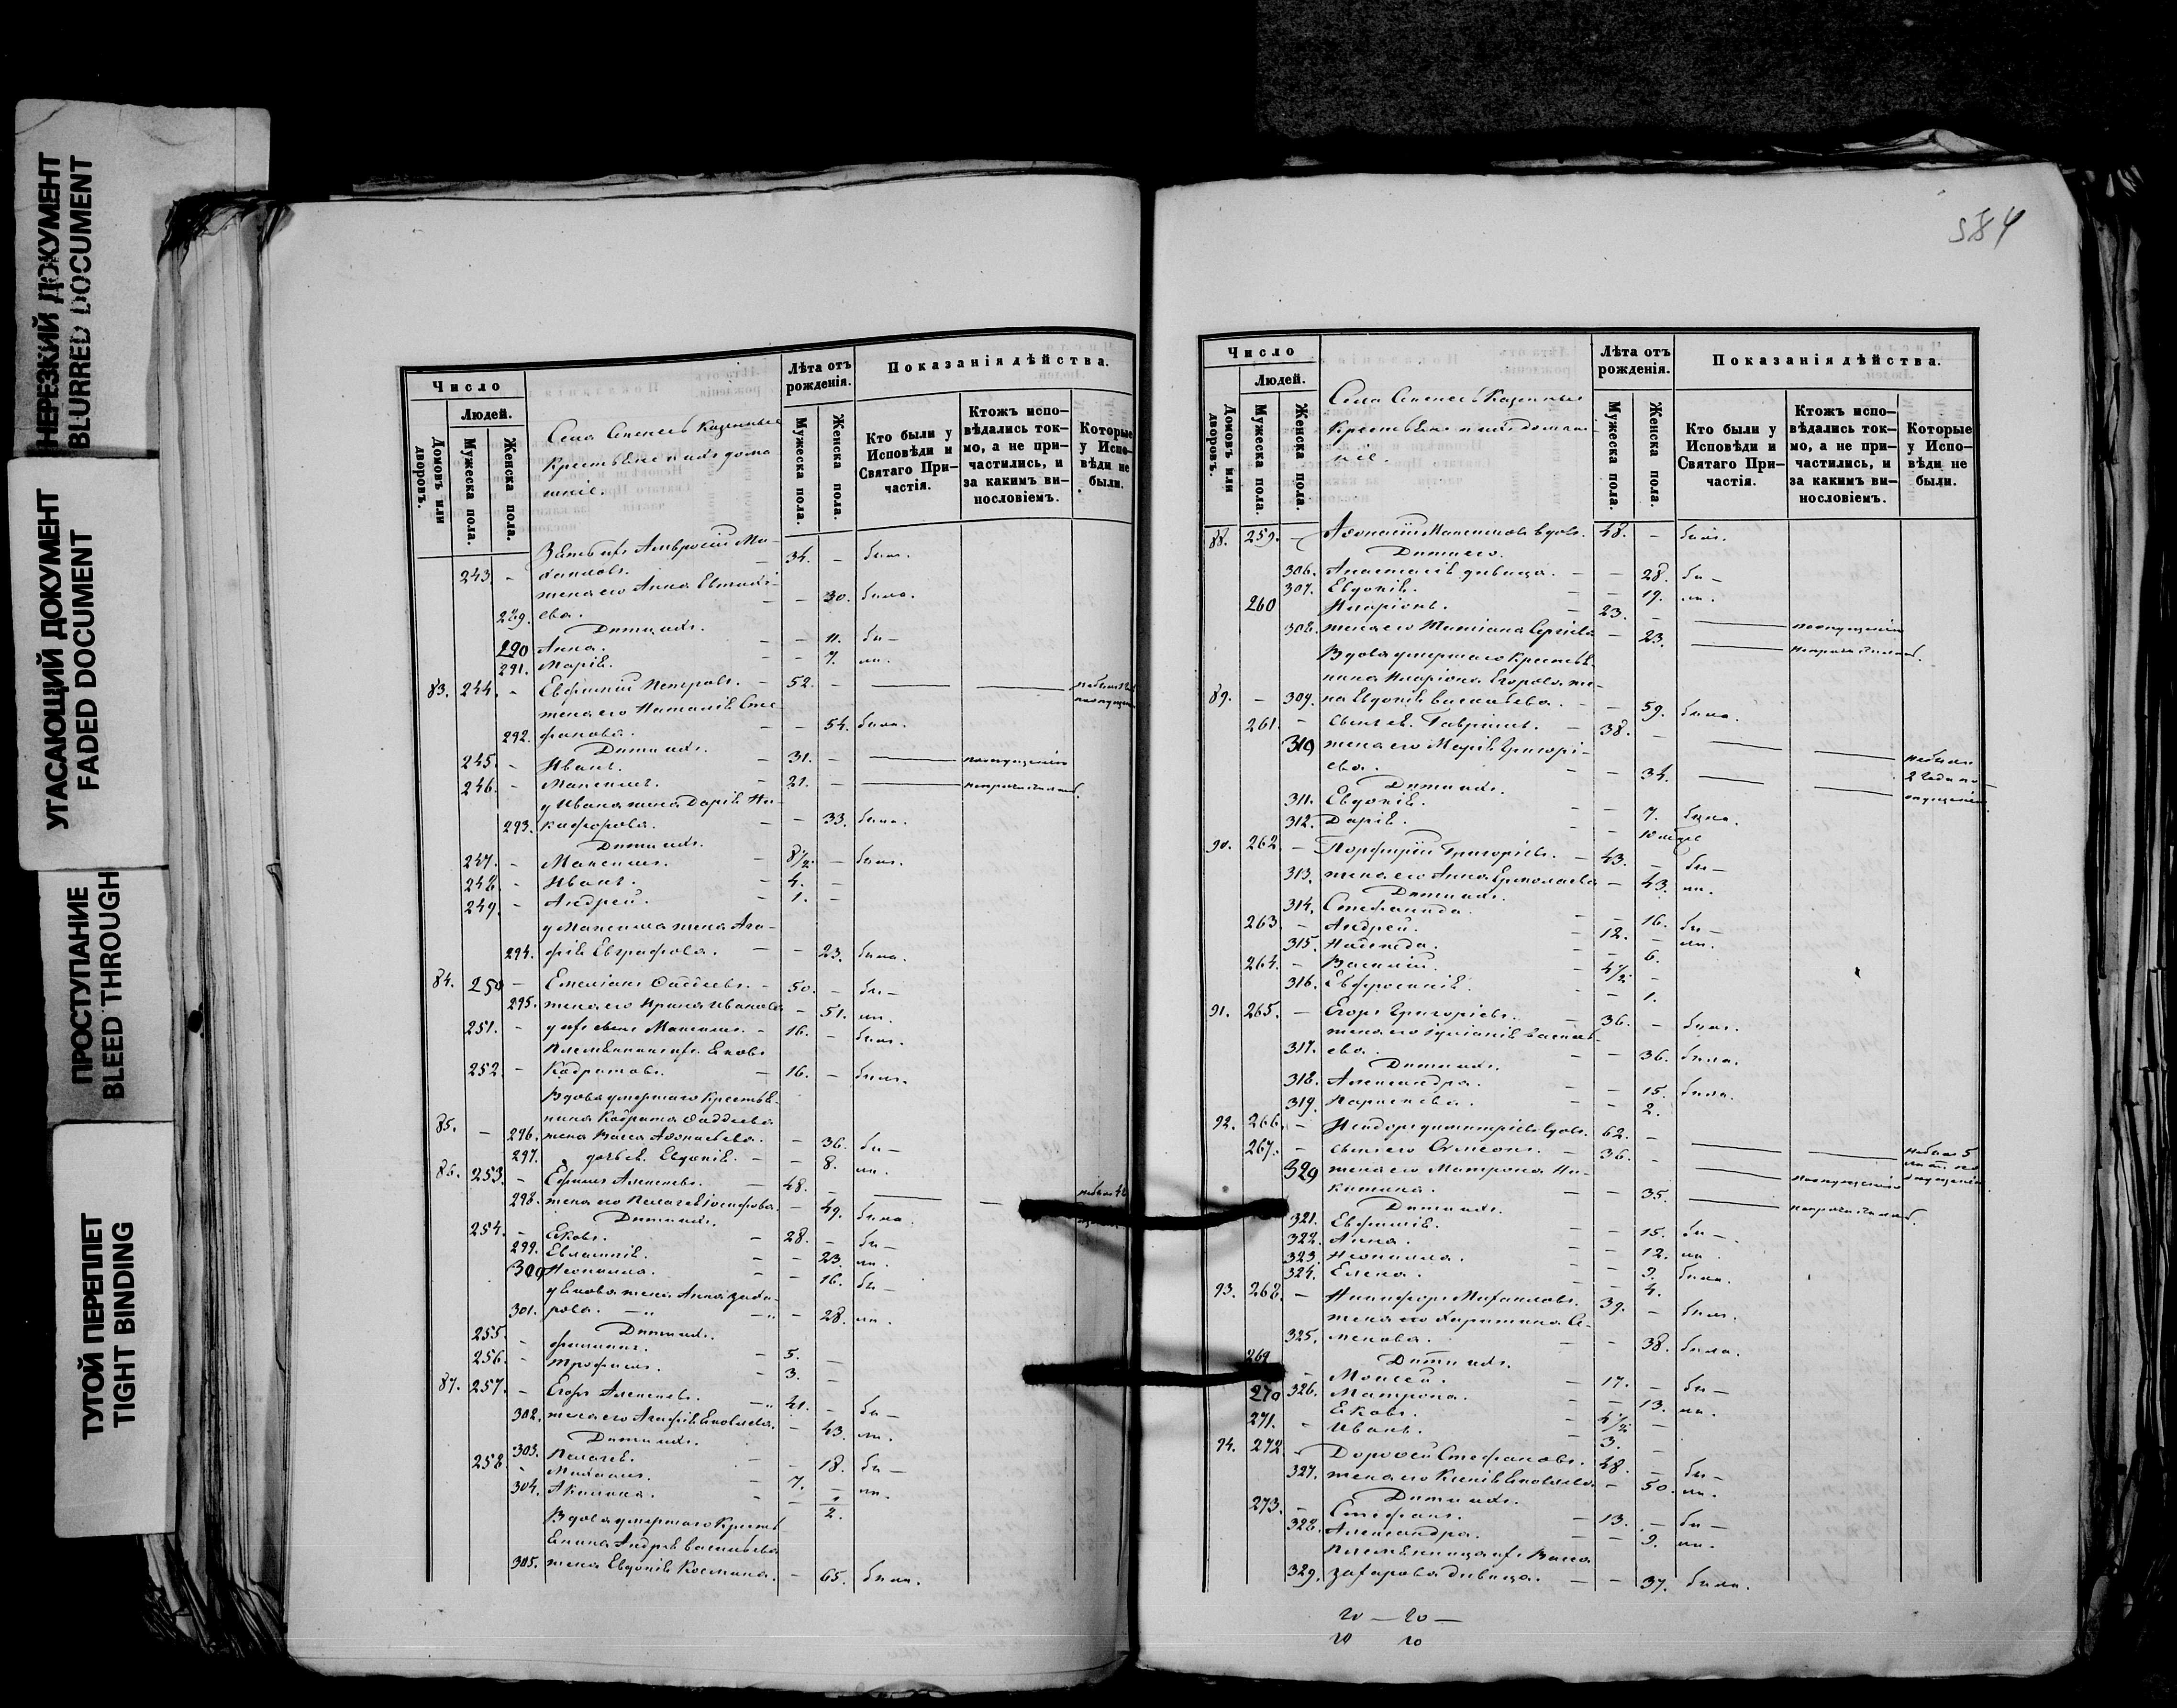 НЕРЕЗКИЙ ДОКУМЕНТ
BLURRED DOCUMENT
УГАСАЮЩИЙ ДОКУМЕНТ
FADED DOCUMENT
ПРОСТУПАНИЕ
BLEED THROUGH
ТУГОЙ ПЕРЕПЛЕТ
TIGHT BINDING
Число
Людей.
Домовъ или дворовъ.
Мужеска пола.
Женска пола.
Села Казенные
Крестьяне и ихъ дома
шніе.
Лѣта отъ рожденія.
Мужеска пола.
Женска пола.
Показанія дѣйства.
Кто были у Исповѣди и Святаго При-частія.
Ктожъ испо-вѣдались ток-мо, а не при-частились, и за какимъ ви-нословіемъ.
Которые у Испо-вѣди не были.
Зять ихъ Амвросій Ми-
243. - хаиловъ. 34. - былъ.
жена его Анна
289. ева. - - 30. была.
Дети ихъ.
290 Анна. - - 11. бы-
291. Марія. - - 7. ли.
83. 244. - Евфимій Петровъ. - 52. -
жена его Наталія Сте
292. фанова. - - 54. была.
Дети ихъ.
245. - Иванъ. - 31. - по опущенію
246. - Максимъ. - 21. -
у Ивана жена Дарія Ни-
293. кифорова. - - 33. была.
Дети ихъ.
247. - Максимъ. - 8 1/2. - былъ.
248. - Иванъ. - 4. -
249. - Андрей. - 1. -
у Максима жена Ага-
294. фія Евграфова. - - 23. была.
84. 250 - Емеліанъ Фаддеевъ. - 50. - бы-
295. жена его Ирина Иванова - 51. ли.
251. - у нихъ сынъ Максимъ. - 16. - былъ.
Племянникъ ихъ Яковъ
252. - Кодратовъ. - 16. - былъ.
Вдова умершаго Крестья-
нина Кодрата Фаддеева
85. - 296. жена Васса Афонасьева. - 36. бы-
297. дочь ея Евдокія. - - 8. ли.
86. 253. - Ефимъ Алексеевъ. 48. -
298. жена его Пелагея Іосифова. - 49. была.
Дети ихъ.
254. - Яковъ. - 28. - бы-
299. Евлампія. - - 23. ли.
300 Неонилла. - - 16. бы-
у Якова жена Анна Заха-
301. рова. - - 28. ли.
Дети ихъ.
255. - Филиппъ. - 5. -
256. - Трофимъ. - 3. -
87. 257. - Егоръ Алексеевъ. - 41. - бы-
302. жена его Агафія Яковлева. - 43. ли.
Дети ихъ.
303. Пелагея. - - 18. бы-
258. - Михаилъ. - 7. - ли.
304. Акилина. - - 1/2.
Вдова умершаго Кресть
янина Андрея Васильева
305. жена Евдокія Космина. - 65. была.
584
Число
Людей.
Домовъ или дворовъ.
Мужеска пола.
Женска пола.
Села Казенные
Крестьяне и ихъ домаш
ніе.
Лѣта отъ рожденія.
Мужеска пола.
Женска пола.
Показанія дѣйства.
Кто были у Исповѣди и Святаго При-частія.
Ктожъ испо-вѣдались ток-мо, а не при-частились, и за какимъ ви-нословіемъ.
Которые у Испо-вѣди не были.
88. 259. - Афонасій Максимовъ вдовъ. 48. - былъ.
Дети его.
306. Анастасія девица. - - 28. бы-
307. Евдокія. - - 19. ли.
260 Иларіонъ. - 23. - по опущенію
308. жена его Татіана Сергіева - 23.
Вдова умершаго Крестья
нина Иларіона Егорова же-
89. - 309. на Евдокія Васильева. - - 59. была.
261. - сынъ ея Гавріилъ. - 38. - не былъ
310 жена его Марія Григорі-
ева. - - 34. 2 года по опущенію
Дети ихъ.
311. Евдокія. - - 7. была.
312. Дарія. - - 10 мцев
90. 262. - Порфирій Григорьевъ. - 43. - бы-
313. жена его Анна Ермолаева - 43. ли.
Дети ихъ.
314. Стефанида. - - 16. бы-
263 - Андрей. - 12. - ли.
315. Надежда. - - 6.
264. - Василій. - 4 1/2. -
316. Евфросинія. - - 1.
91. 265. - Егоръ Григоріевъ. - 36. - былъ.
жена его Іуліанія Василь
317. ева. - - 36. была.
Дети ихъ.
318. Александра. - - 15. была.
319. Параскева. - - 2.
92. 266. - Исидоръ Димитріевъ вдовъ. 62. - не былъ 5
267. - сынъ его Симеонъ. - 36. - по опущенію
320 жена его Матрона Ни-
китина. - - 35.
Дети ихъ.
321. Евфимія. - - 15. бы-
322. Анна. - - 12. ли.
323. Неонилла. - - 9. была.
324. Елена. - - 4.
93. 268. - Никифоръ Михаиловъ. 39. - былъ.
жена его Харитина Се-
325. менова. - - 38. была.
Дети ихъ.
269 - Моисей. - 17. - бы-
326. Матрона. - - 13. ли.
270 Яковъ. - 4 1/2. -
271. - Иванъ. - 3. -
94. 272. - Дорофей Стефановъ. 48. - бы-
327. жена его Ксенія Яковлева - 50. ли.
Дети ихъ.
273. - Стефанъ. - 13. - бы-
328. Александра. - - 9. ли.
Племянница ихъ Васса
329. Захарова девица. - - 37. была.
20 — 20 —
20 20